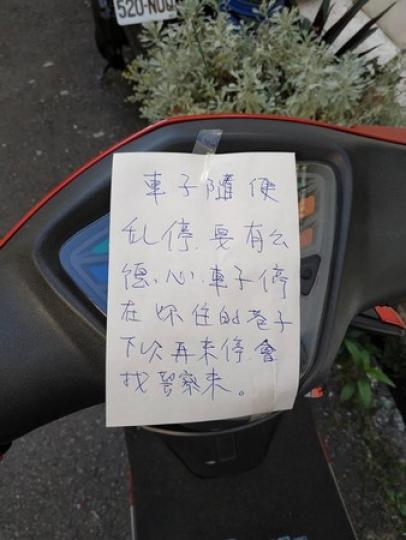 520-NUQ
車子隨便
乱停.要有公
德心.車子停
在你住的巷子
下次再来停會
找警察来。